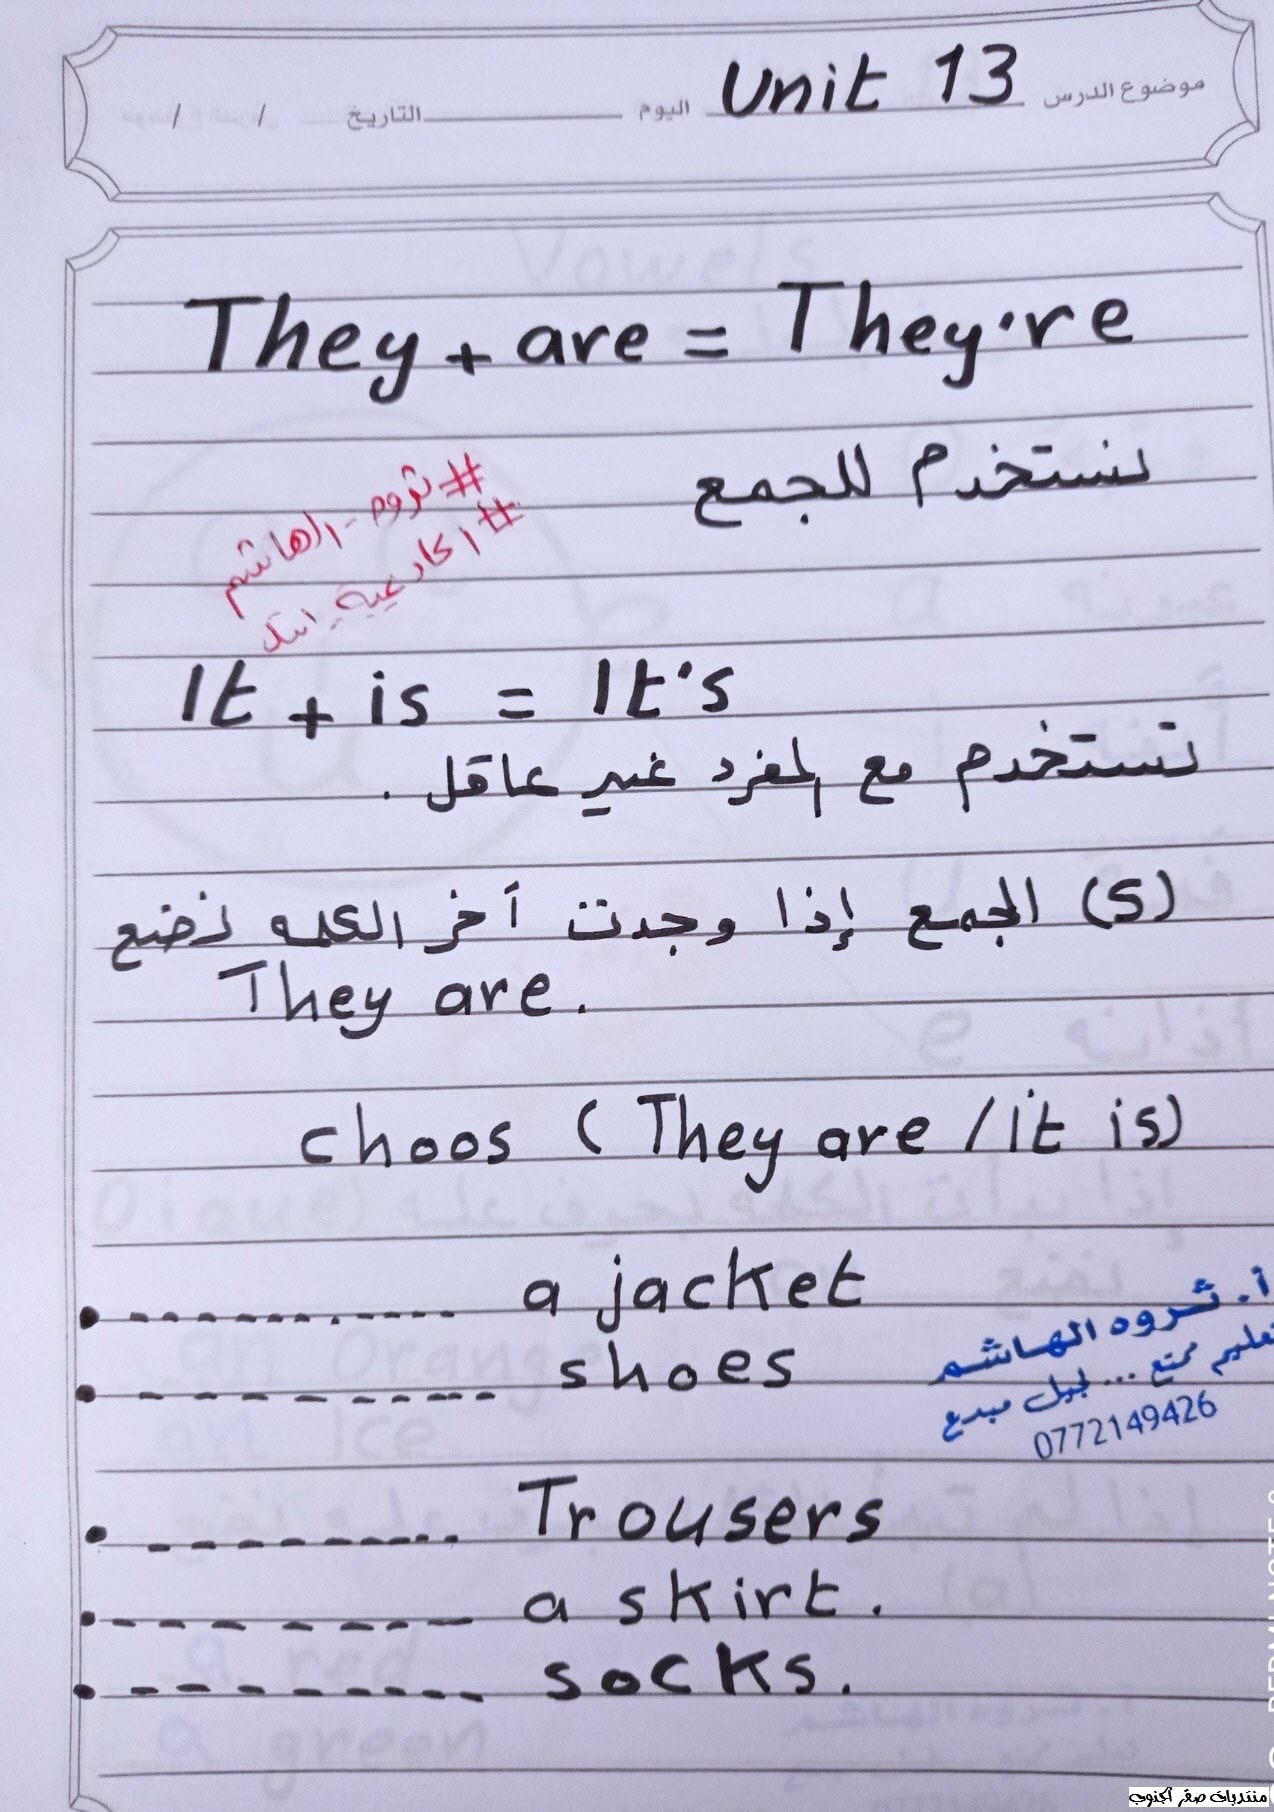 موضوع الدرس Unit 13 اليوم التاريخ / /
They + are = They're
نستخدم للجمع
#ثروه-الهاشم
It + is = It's
تستخدم مع المفرد غير عاقل .
(s) الجمع إذا وجدت آخر الكلمه نضع
They are.
choos ( They are / it is)
• ---------- a jacket
• ---------- shoes
أ. ثروه الهاشم
تعليم ممتع ... لجيل مبدع
0772149426
• ---------- Trousers
• ---------- a skirt.
• ---------- socks.
منتديات صقر الجنوب